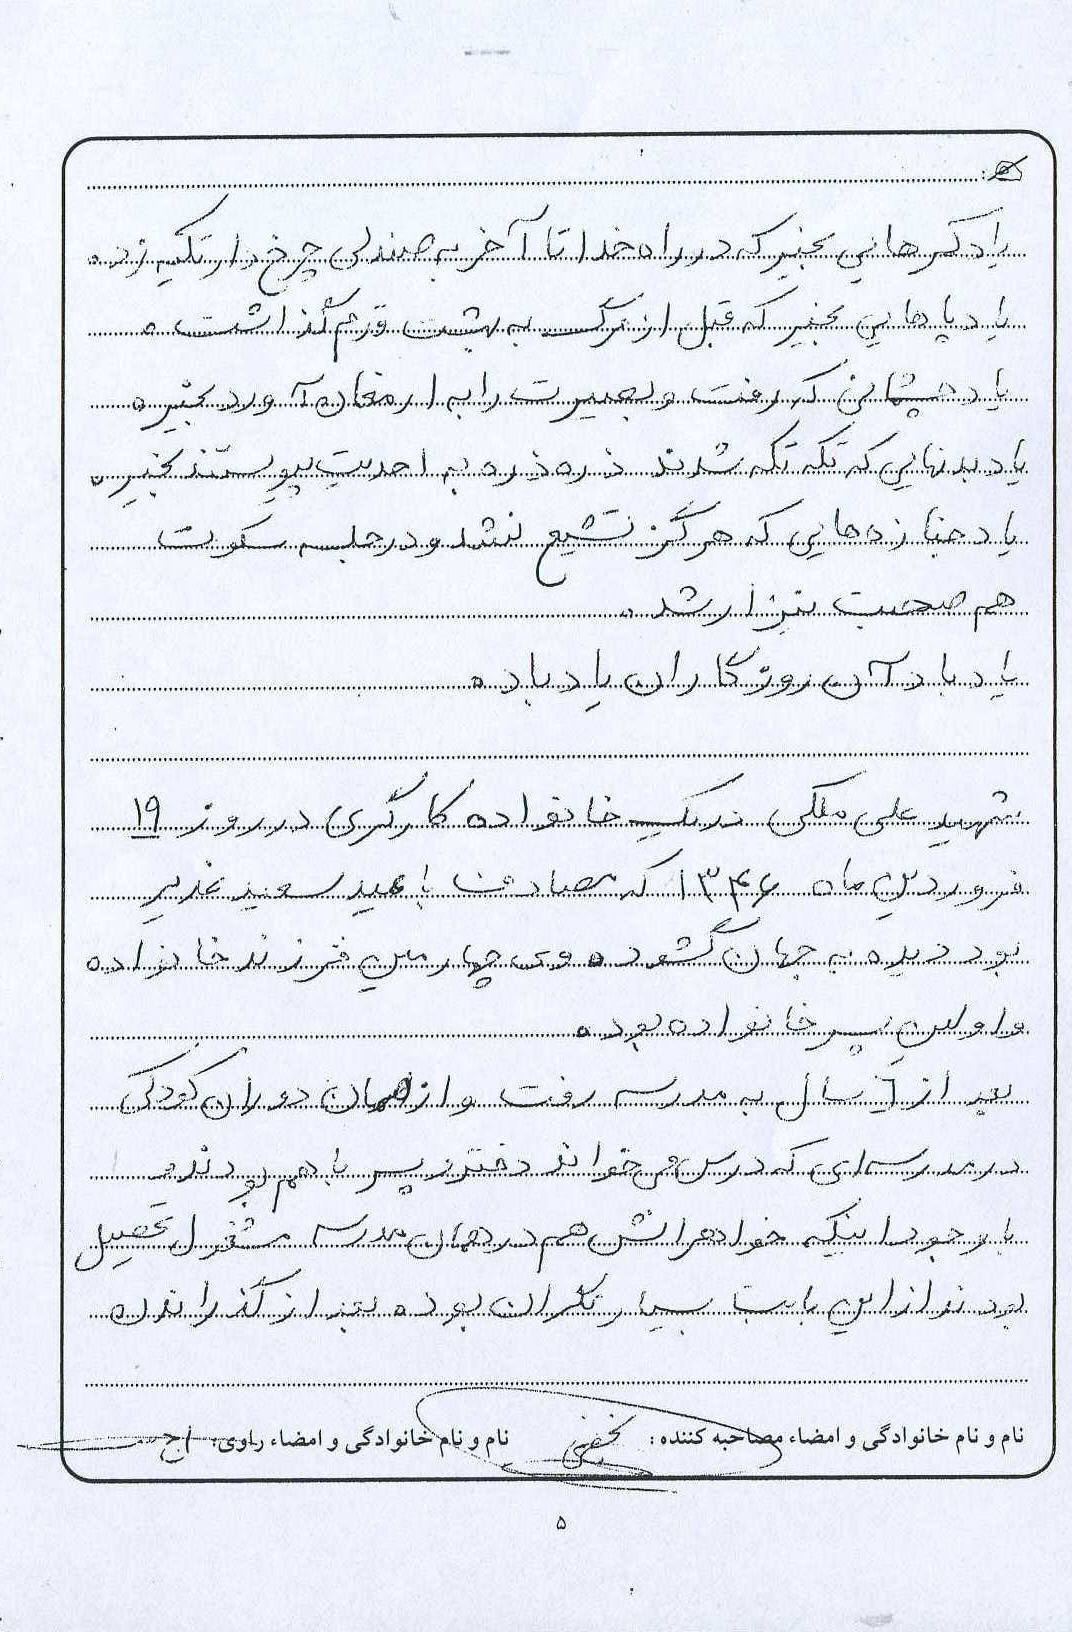 یاد کمرهایی بخیر که در راه خدا تا آخر به صندلی چرخ دار تکیه زده
یاد پاهایی بخیر که قبل از مرگ به بهشت قدم گذاشت.
یاد چشمانی که رفت و بصیرت را به ارمغان آورد بخیر.
یاد بدنهایی که تکه تکه شدند ذره ذره به احدیت پیوستند بخیر.
یاد جنازه‌هایی که هرگز تشیع نشد و در جلسه سکوت
هم صحبت نیزار شد.
یاد باد آن روزگاران یاد باد.
شهید علی ملکی در یک خانواده کارگری در روز ۱۹
فروردین ماه ۱۳۴۶ که مصادف با عید سعید غدیر
بود دیده به جهان گشود. وی چهارمین فرزند خانواده
و اولین پسر خانواده بود.
بعد از ۶ سال به مدرسه رفت و از همان دوران کودکی
در مدرسه‌ای که درس می خواند دختر و پسر با هم بودند و
با وجود اینکه خواهرانش هم در همان مدرسه مشغول تحصیل
بودند از این بابت بسیار نگران بود. بعد از گذراندن
نام و نام خانوادگی و امضاء مصاحبه کننده: نام و نام خانوادگی و امضاء راوی:
۵